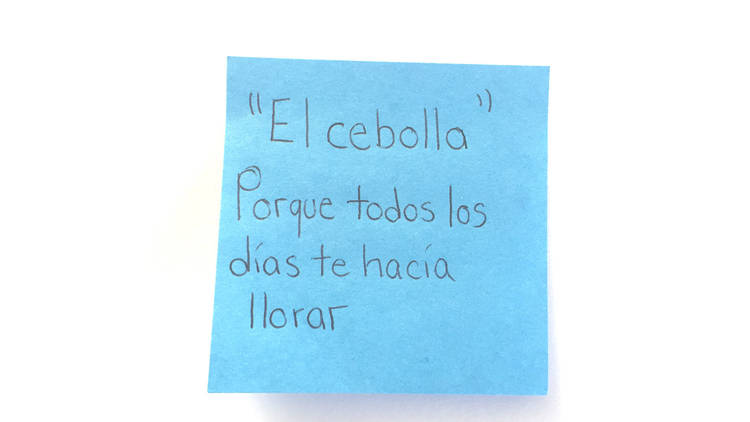 "El cebolla"
Porque todos los
días te hacía
llorar